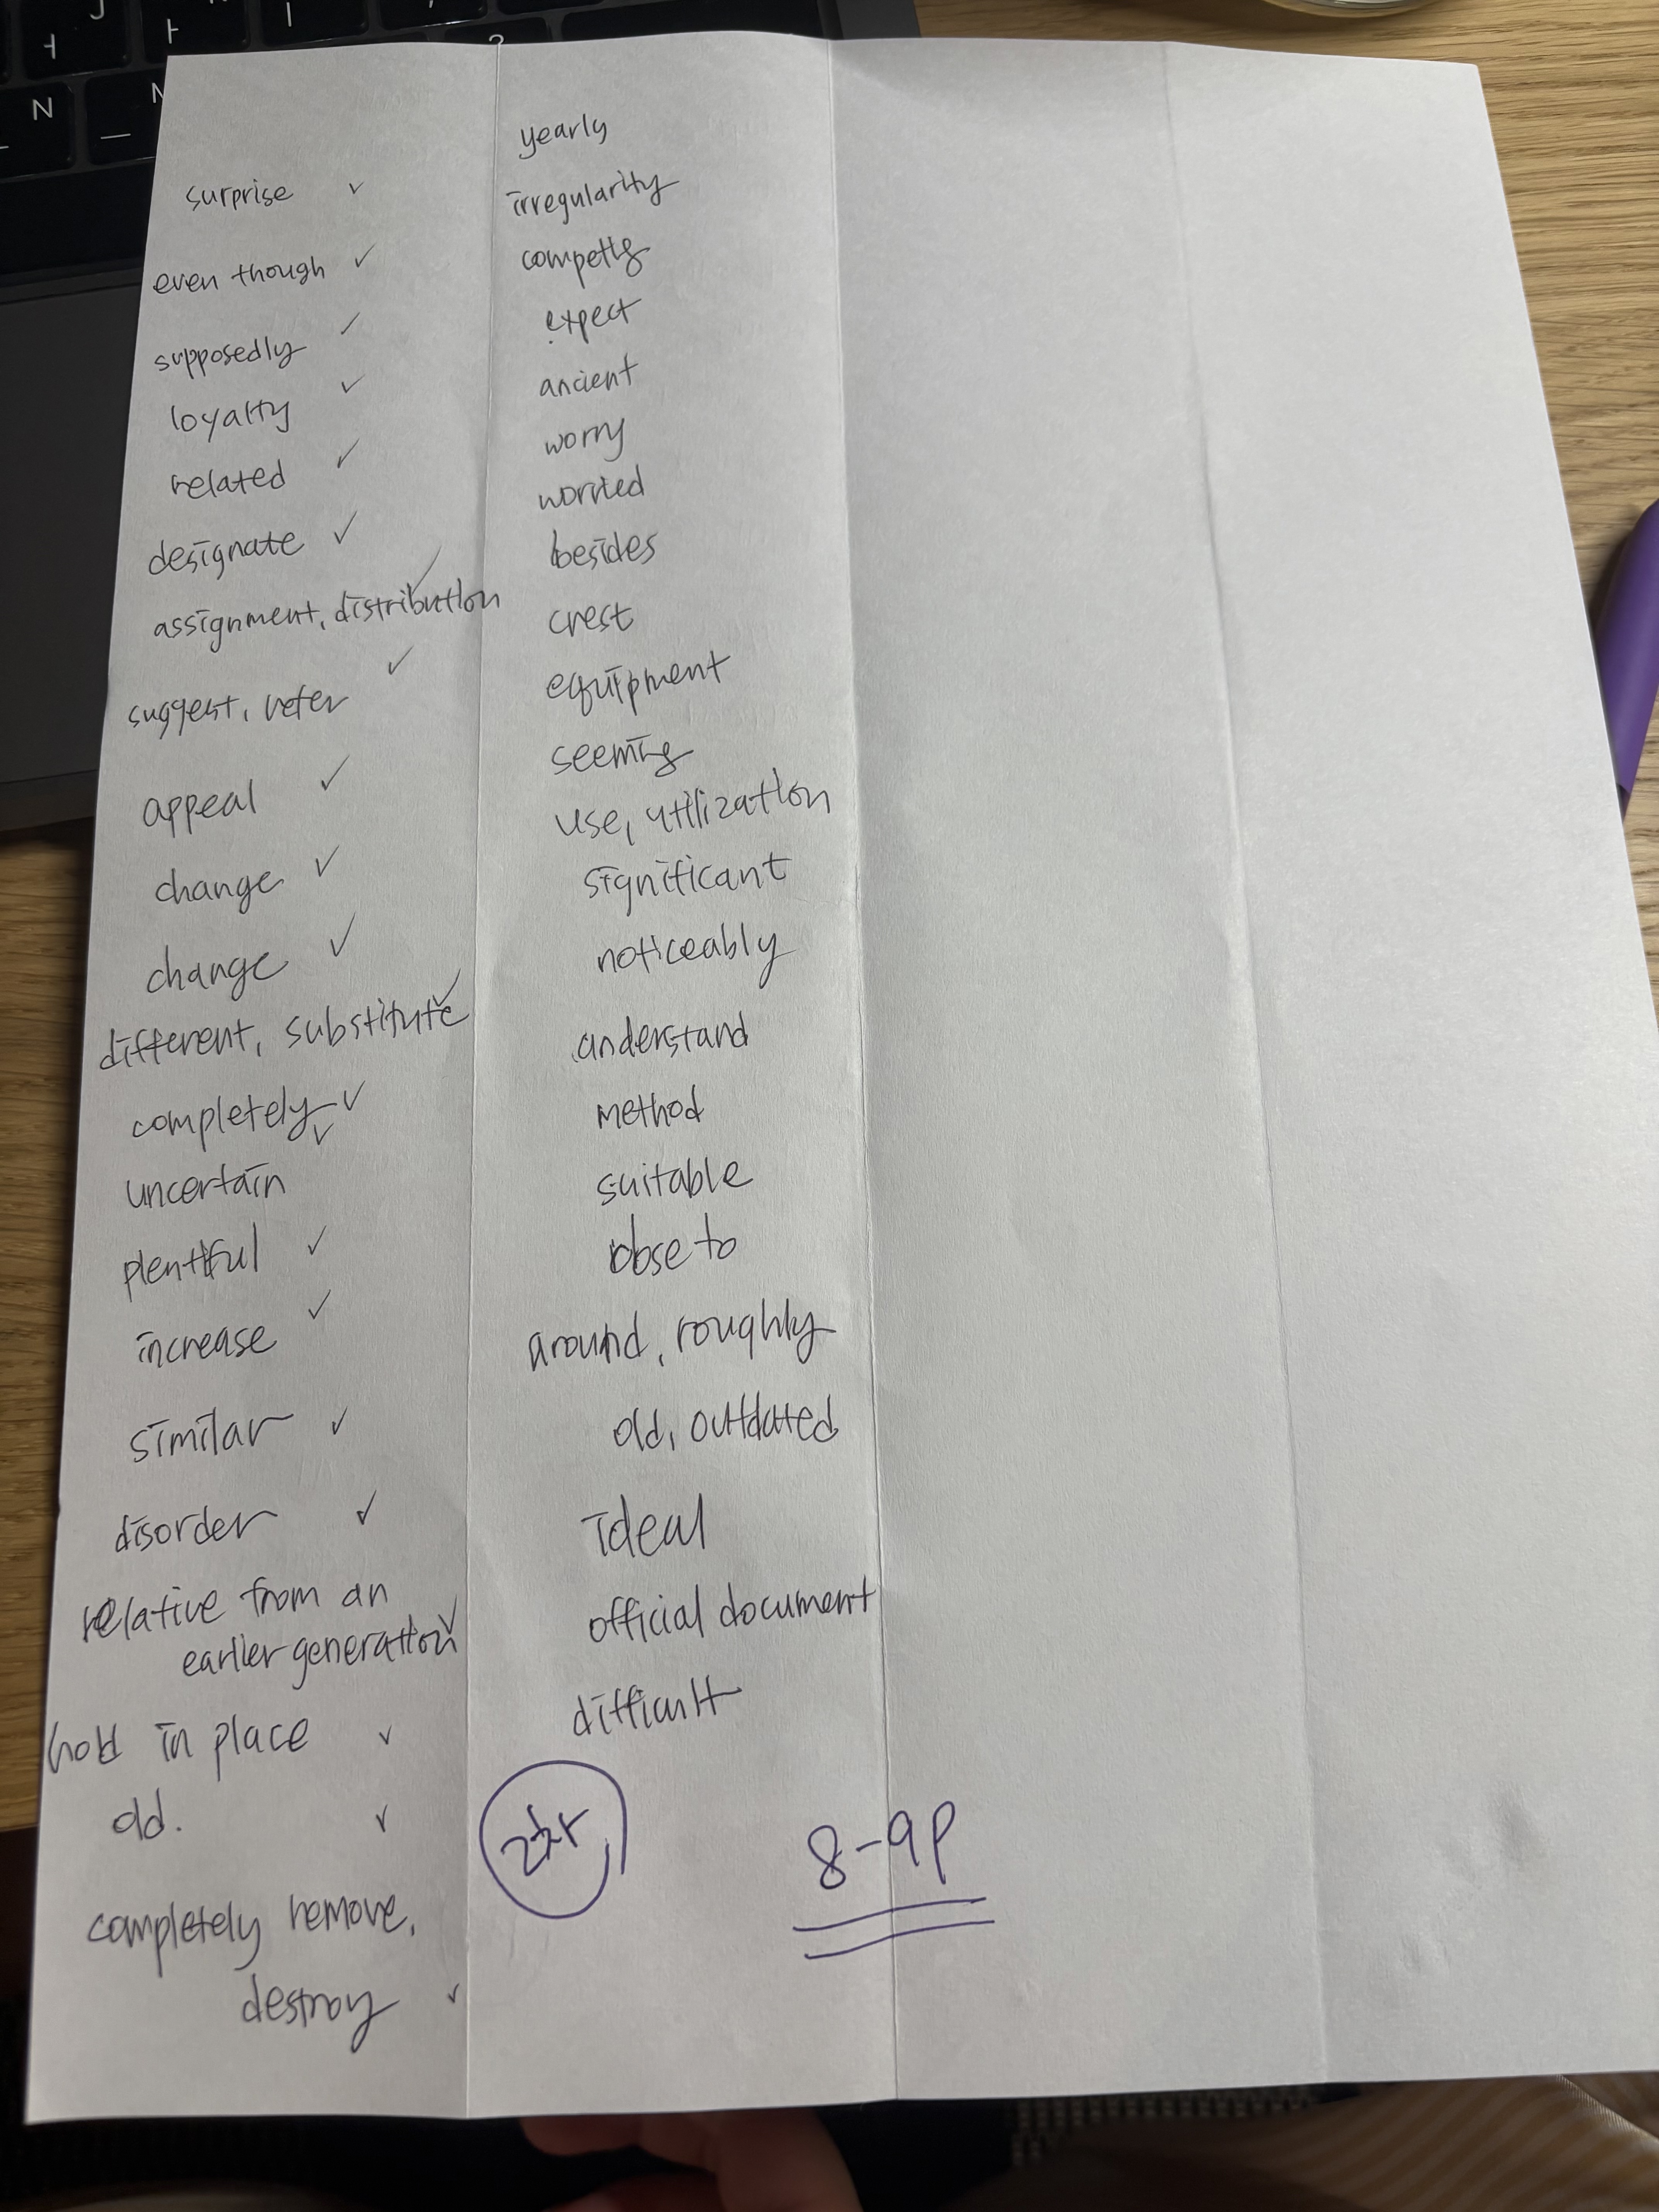 surprise ✓
even though ✓
supposedly ✓
loyalty ✓
related ✓
designate ✓
assignment, distribution ✓
suggest, refer ✓
appeal ✓
change ✓
change ✓
different, substitute ✓
completely ✓
uncertain ✓
plentiful ✓
increase ✓
similar ✓
disorder ✓
relative from an
earlier generation ✓
hold in place ✓
old. ✓
completely remove,
destroy ✓
yearly
irregularity
expect
ancient
worry
worried
besides
crest
equipment
seeming
use, utilization
significant
noticeably
understand
method
suitable
close to
around, roughly
old, outdated
ideal
official document
difficult
8-9p
N